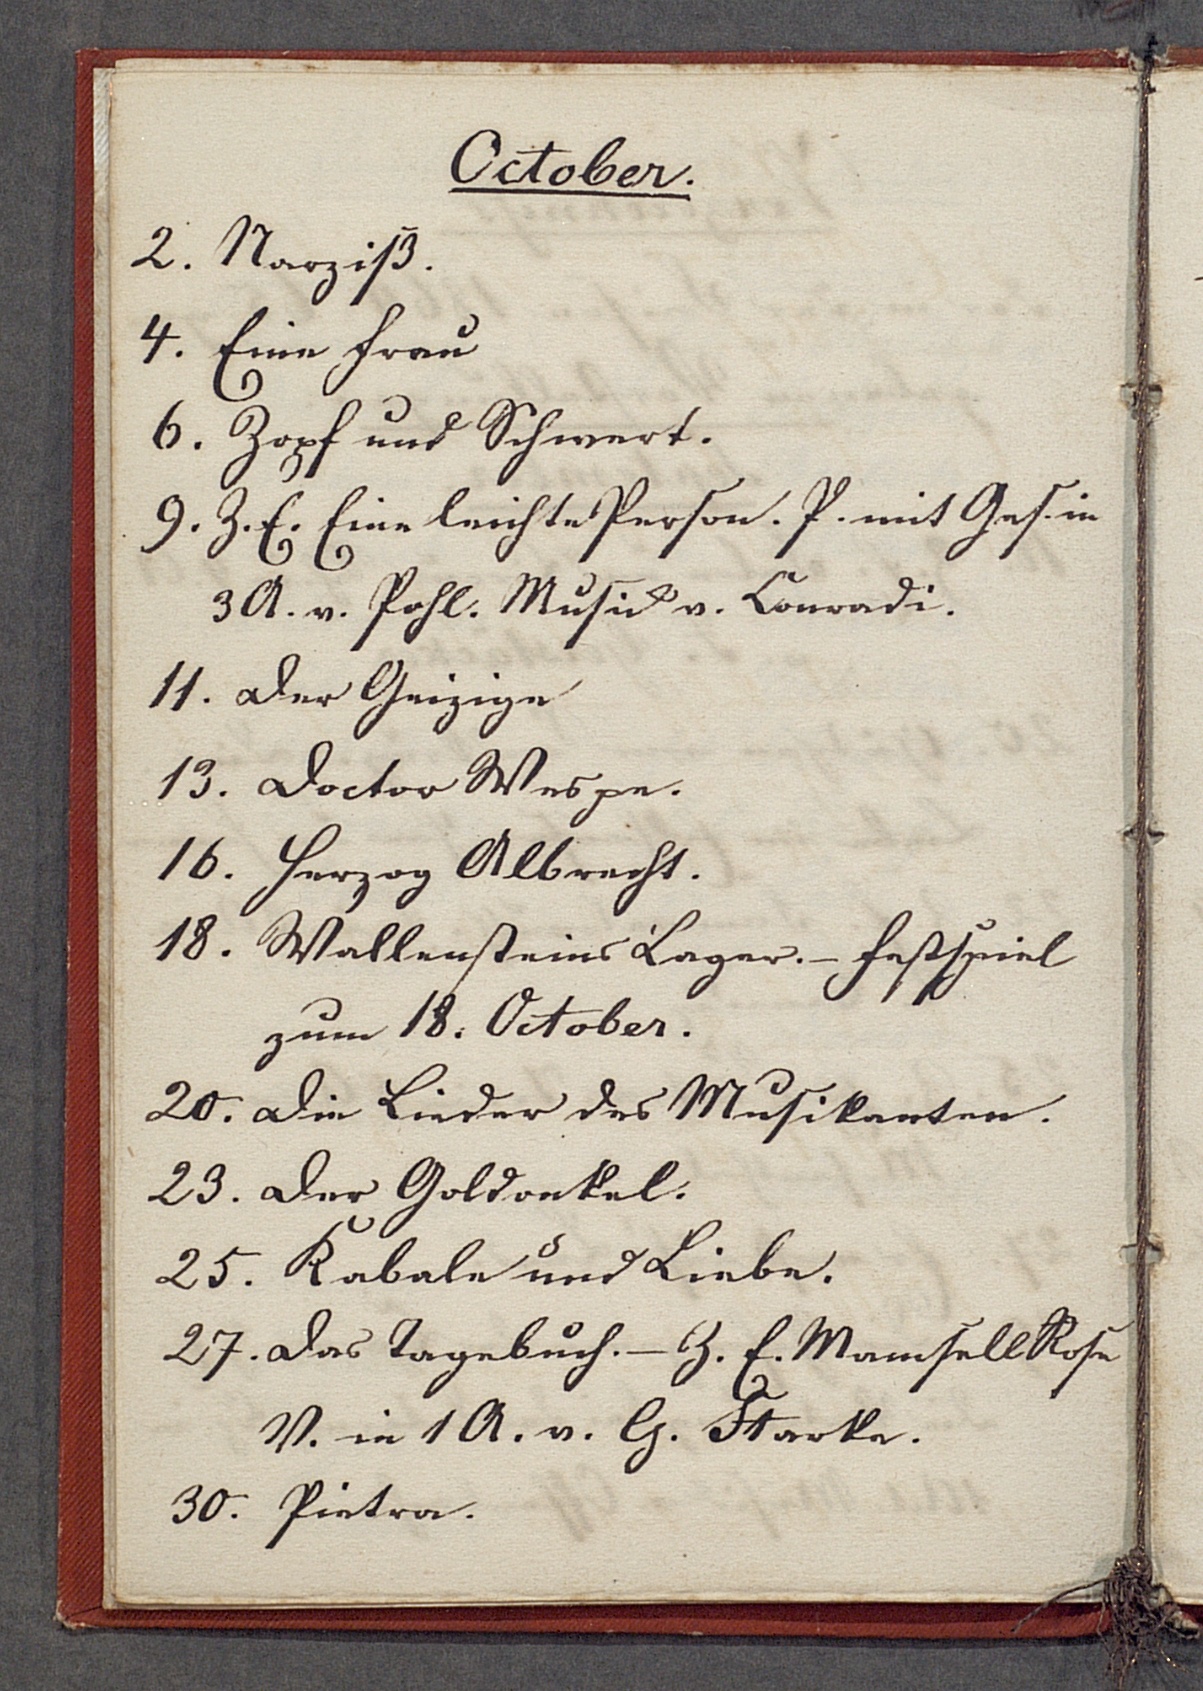 October.
2. Narziß.
4. Eine Frau
6. Zopf und Schwert.
9. Z. E. Eine leichte Person. P. mit Ges. in
3 A. v. Pohl. Musik v. Conradi.
11. Der Geizige
13. Doctor Wespe.
16. Herzog Albrecht.
18. Wallensteins Lager. – Festspiel
zum 18. October.
20. Die Lieder des Musikanten.
23. Der Goldonkel.
25. Kabale und Liebe.
27. Das Tagebuch. – Z. E. Mamsell Rose
V. in 1 A. v. G. Starke.
30. Pietra.